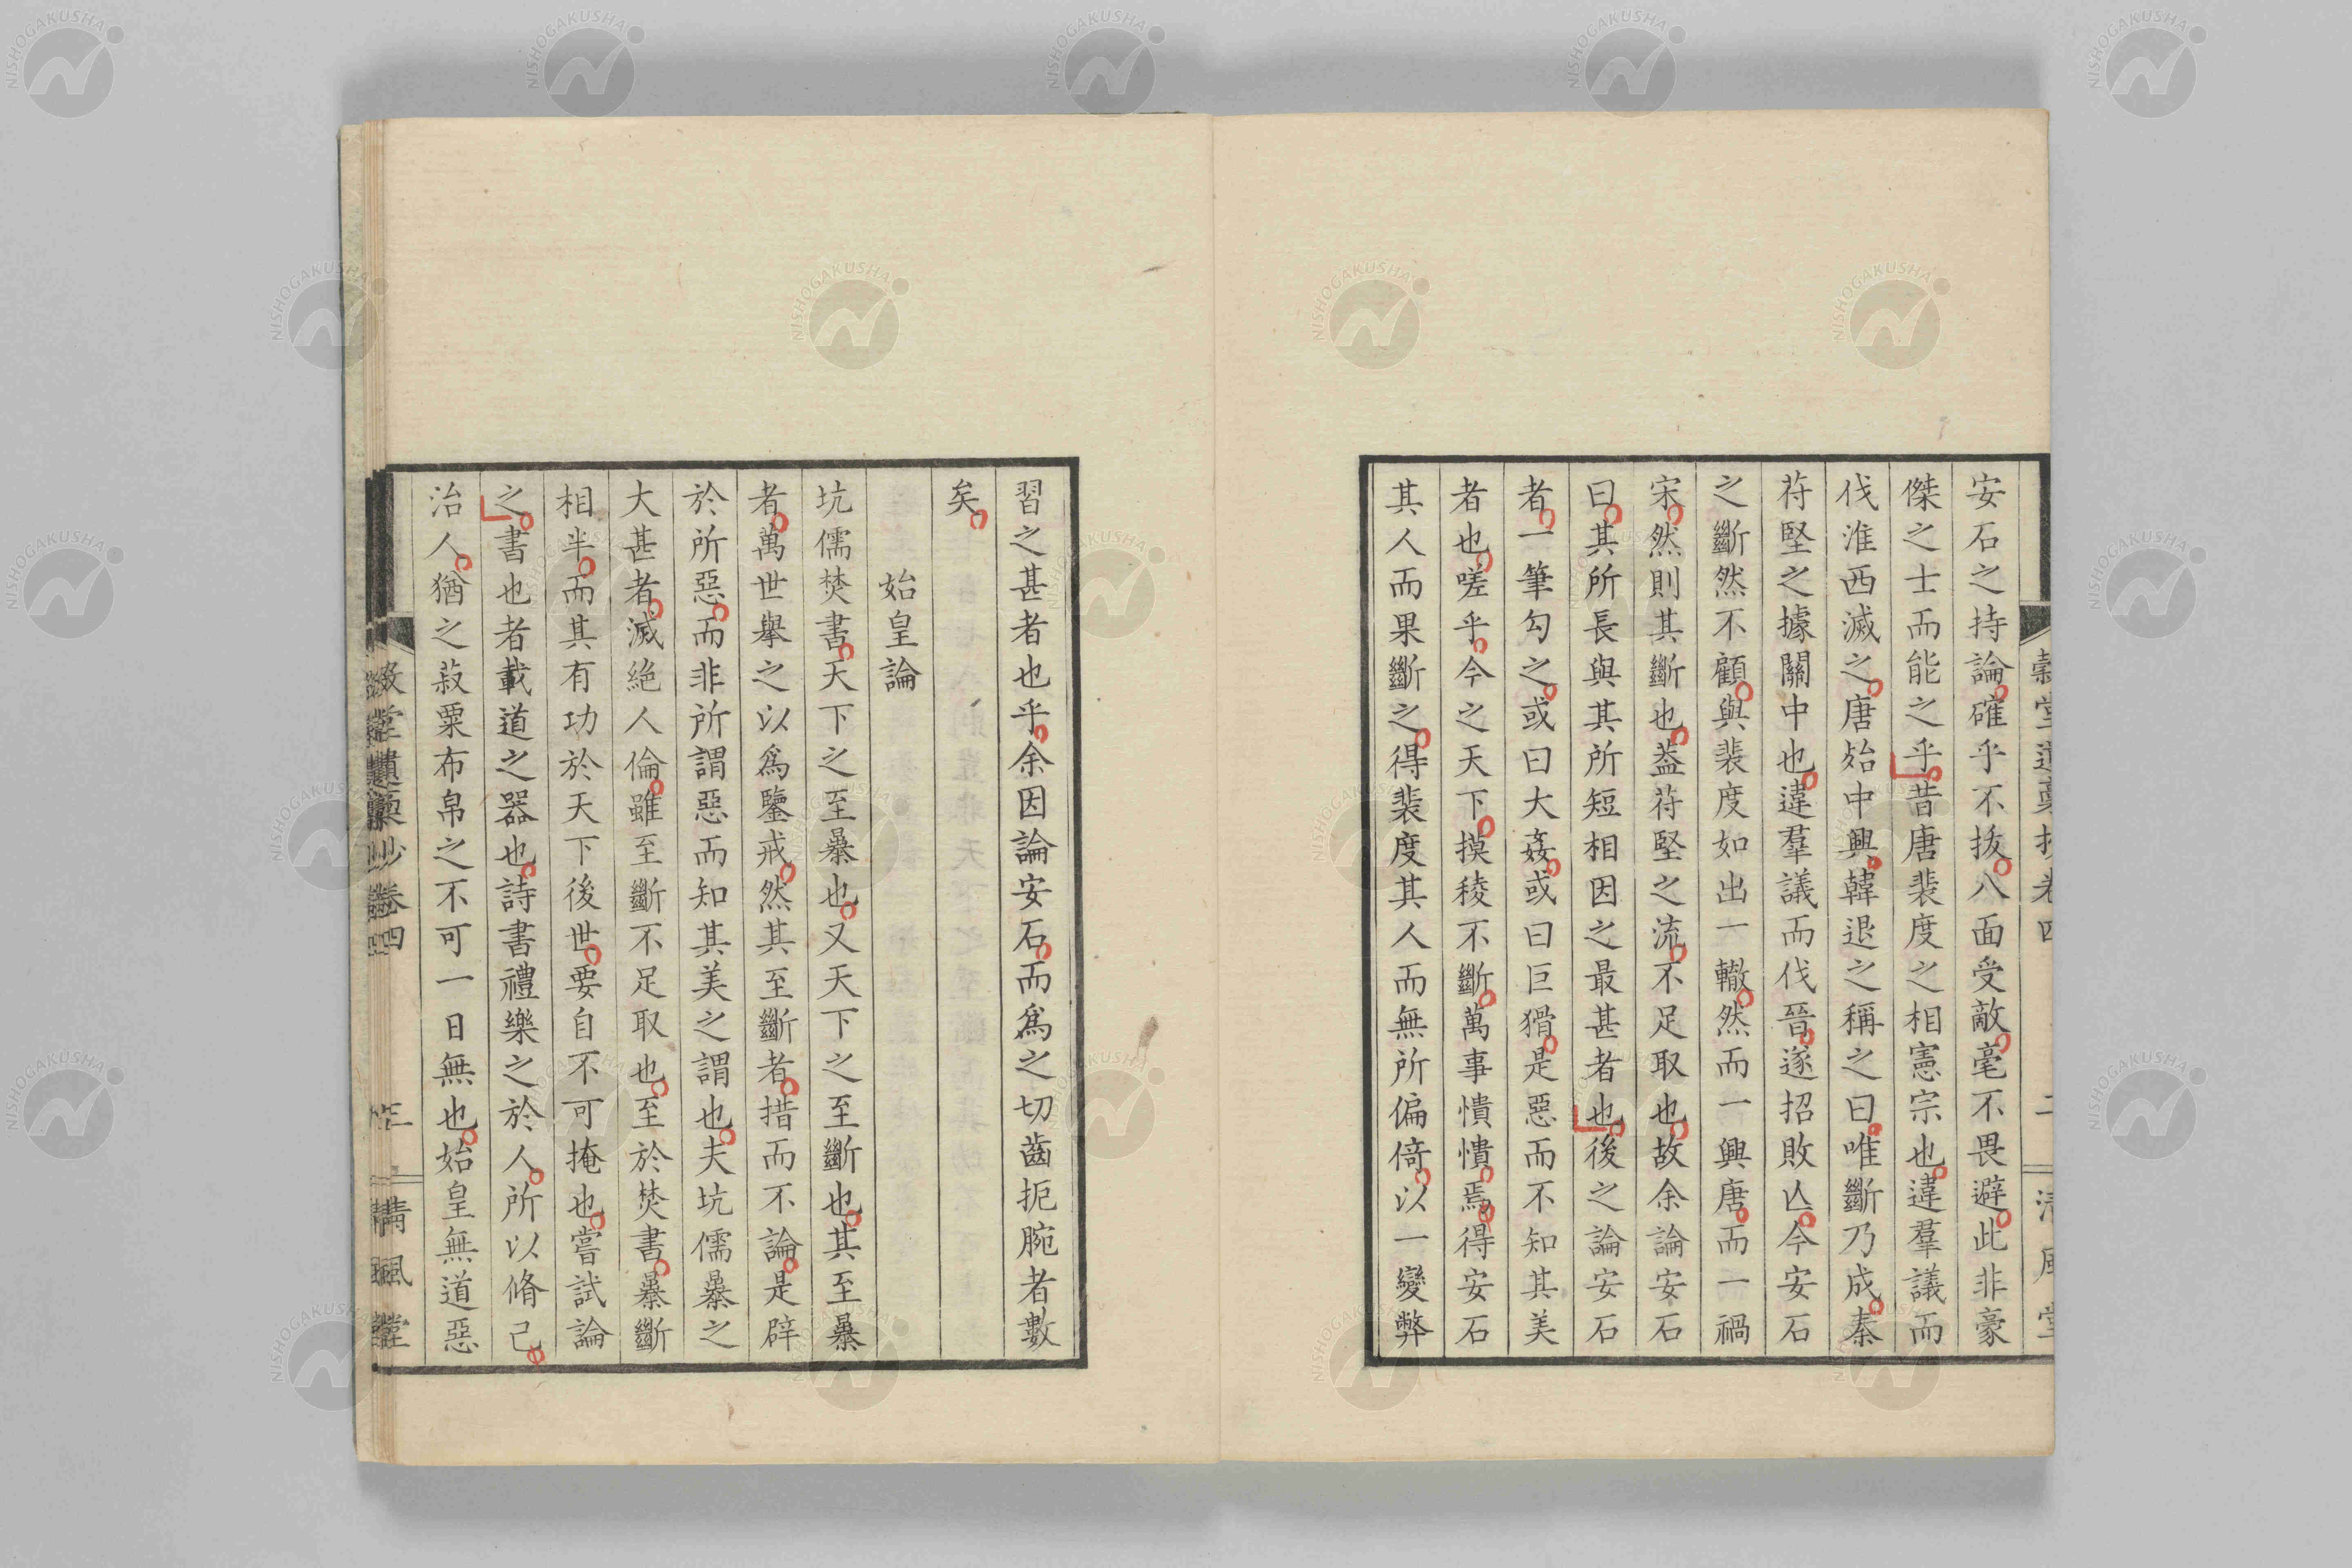 安石之持論確乎不拔八面受敵毫不畏避此非豪
傑之士而能之乎昔唐裴度之相憲宗也違羣議而
伐淮西滅之唐始中興韓退之稱之曰唯斷乃成秦
苻堅之據關中也違羣議而伐晉遂招敗亾今安石
之斷然不顧與裴度如出一轍然而一興唐而一禍
宋然則其斷也葢苻堅之流不足取也故余論安石
曰其所長與其所短相因之最甚者也後之論安石
者一筆勾之或曰大姦或曰巨猾是惡而不知其美
者也嗟乎今之天下摸稜不斷萬事憒憒焉得安石
其人而果斷之得裴度其人而無所偏倚以一變弊
習之甚者也乎余因論安石而爲之切齒扼腕者數
矣
始皇論
坑儒焚書天下之至暴也又天下之至斷也其至暴
者萬世擧之以爲鑒戒然其至斷者措而不論是辟
於所惡而非所謂惡而知其美之謂也夫坑儒暴之
大甚者滅絕人倫雖至斷不足取也至於焚書暴斷
相半而其有功於天下後世要自不可掩也嘗試論
之書也者載道之器也詩書禮樂之於人所以脩己
治人猶之菽粟布帛之不可一日無也始皇無道惡
清風堂
NISHOGAKUSHA